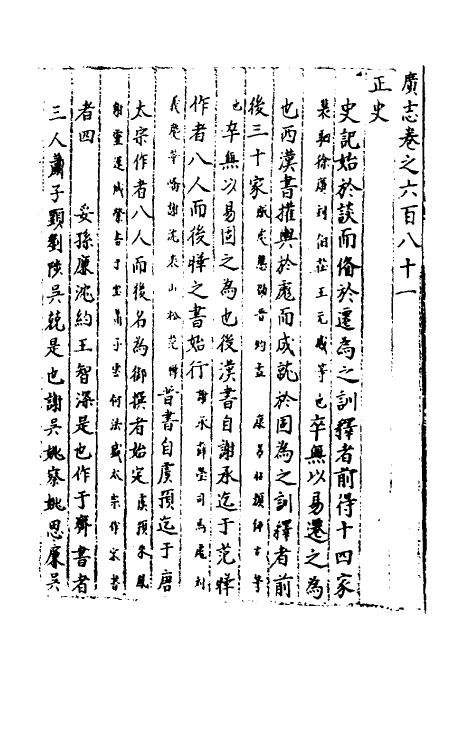 廣志卷之六百八十一
正史
史記始於談而備於遷為之訓釋者前得十四家
裴駰徐廣劉伯莊王元感等也卒無以易遷之為
也西漢書權輿於彪而成就於固為之訓釋者前
後三十家服虔應劭晉灼孟康呂 顏師古等
也卒無以易固之為也後漢書自謝承迄于范曄
作者八人而後曄之書始行謝承薛瑩司馬彪劉
義慶華嶠謝沈袁山松范曄晉書自虞預迄于唐
太宗作者八人而後名為御撰者始定虞預朱鳳
謝靈運臧榮緒干寶蕭子雲何法盛太宗作宋書
者四 孫康沈約王智深是也作于齊書者
三人蕭子顯劉陟吳兢是也謝吳姚察姚思廉吳